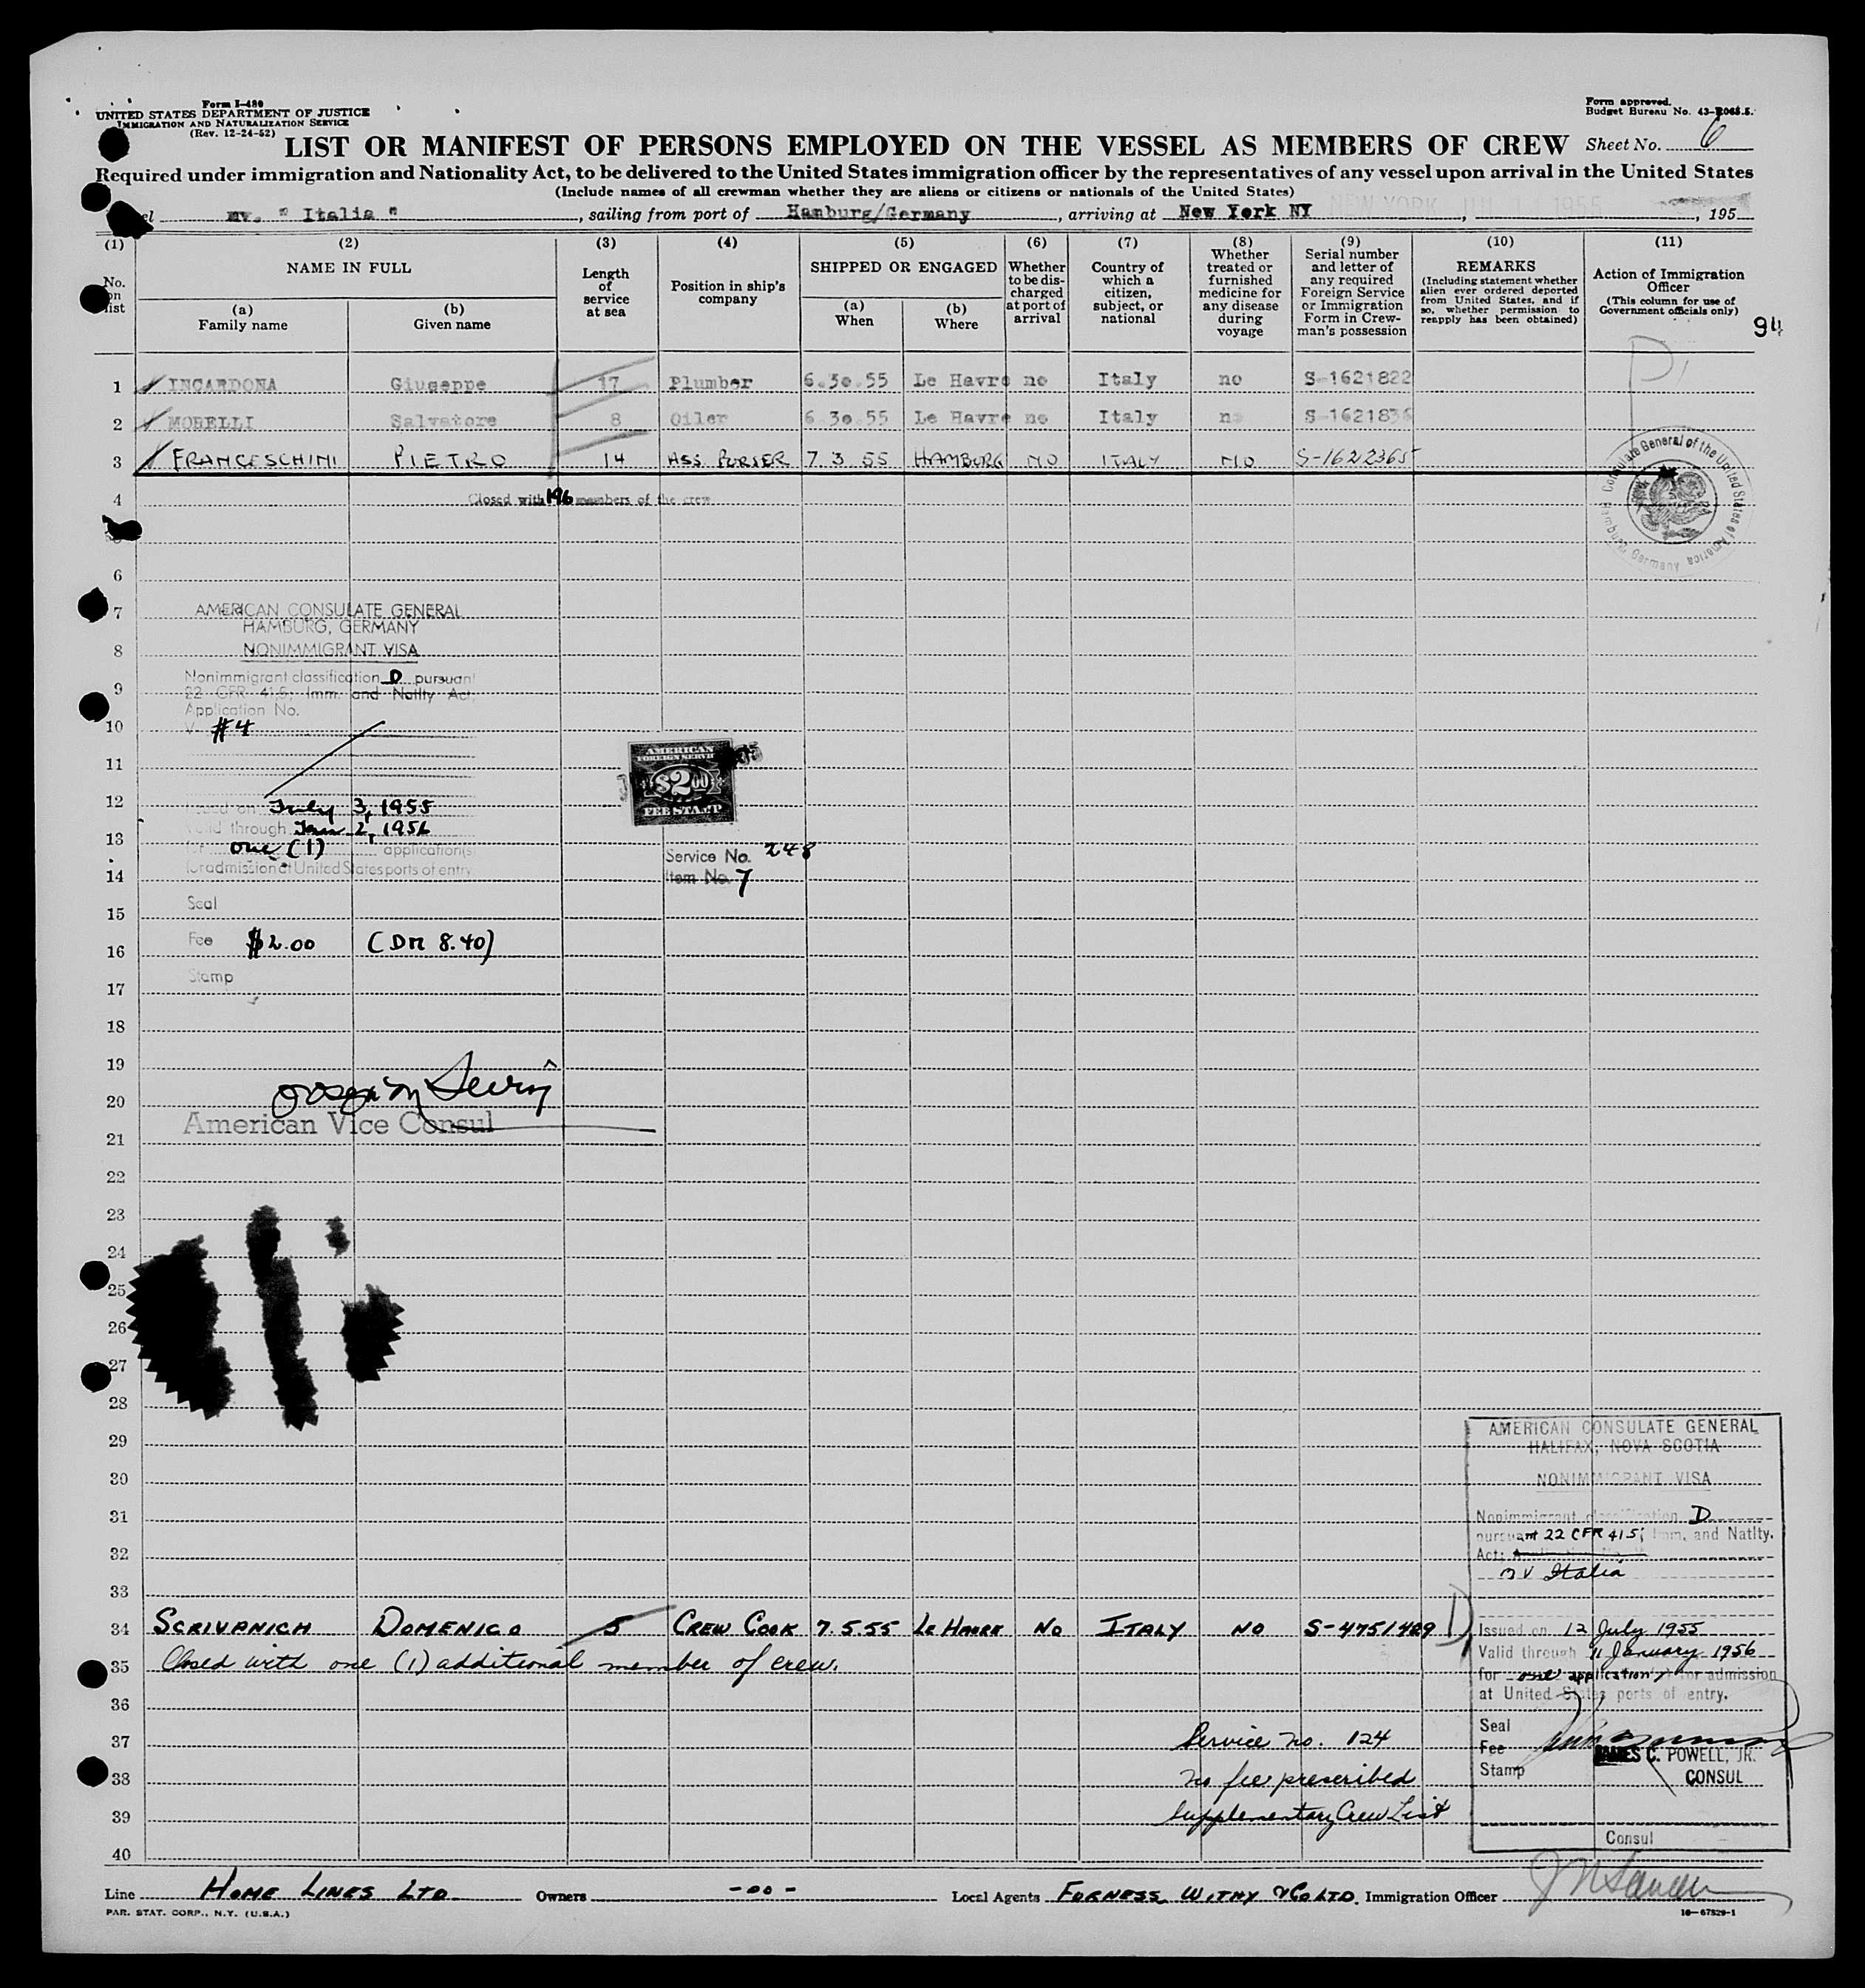 Form I-480
UNITED STATES DEPARTMENT OF JUSTICE
IMMIGRATION AND NATURALIZATION SERVICE
(Rev. 12-24-52)
Form approved.
Budget Bureau No. 43-R065.5.
LIST OR MANIFEST OF PERSONS EMPLOYED ON THE VESSEL AS MEMBERS OF CREW Sheet No. 6
Required under immigration and Nationality Act, to be delivered to the United States immigration officer by the representatives of any vessel upon arrival in the United States
(Include names of all crewman whether they are aliens or citizens or nationals of the United States)
mv. " Italia " , sailing from port of Hamburg/Germany , arriving at New York NY NEW YORK 1955 , , 195
(1) (2) (3) (4) (5) (6) (7) (8) (9) (10) (11)
No. on list
NAME IN FULL
(a) Family name
(b) Given name
Length of service at sea
Position in ship's company
SHIPPED OR ENGAGED
(a) When
(b) Where
Whether to be discharged at port of arrival
Country of which a citizen, subject, or national
Whether treated or furnished medicine for any disease during voyage
Serial number and letter of any required Foreign Service or Immigration Form in Crewman's possession
REMARKS
(Including statement whether alien ever ordered deported from United States, and if so, whether permission to reapply has been obtained)
Action of Immigration Officer
(This column for use of Government officials only)
94
1 INCARDONA Giuseppe 17 Plumber 6.30.55 Le Havre no Italy no S-1621822
2 MORELLI Salvatore 8 Oiler 6.30.55 Le Havre no Italy no S-1621836
3 FRANCESCHINI PIETRO 14 ASS. PURSER 7.3.55 HAMBURG NO ITALY NO S-1622365
Consulate General of the United States of America
Hamburg Germany
4 Closed with 196 members of the crew
6
7 AMERICAN CONSULATE GENERAL
HAMBURG, GERMANY
8 NONIMMIGRANT VISA
Nonimmigrant classification D pursuant
9 22 CFR 41.5; Imm. and Natlty Act,
Application No.
10 V #4
11
AMERICAN
FOREIGN SERVICE
$2.00
FEE STAMP
12 Issued on July 3, 1955
Valid through Jan 2, 1956
13 for one (1) application(s)
Service No. 248
14 for admission at United States ports of entry
Item No. 7
15 Seal
16 Fee $2.00 (DM 8.40)
17 Stamp
18
19
20
American Vice Consul
21
22
23
24
25
26
27
28
29 AMERICAN CONSULATE GENERAL
HALIFAX, NOVA SCOTIA
30 NONIMMIGRANT VISA
31 Nonimmigrant classification D
pursuant 22 CFR 41.5; Imm. and Natlty.
32 Act;
MV Italia
33
34 SCRIVANICH DOMENICO 5 CREW COOK 7.5.55 LE HAVRE NO ITALY NO S-4751429 D
Issued on 12 July 1955
Valid through 11 January 1956
35 Closed with one (1) additional member of crew.
for one application for admission
at United States ports of entry.
36
Seal
37 Service no. 124
Fee
JAMES C. POWELL, JR.
Stamp
CONSUL
38 no fee prescribed
39 Supplementary Crew List
Consul
40
Line HOME LINES LTD. Owners -oo- Local Agents FURNESS WITHY & CO LTD. Immigration Officer
PAR. STAT. CORP., N.Y. (U.S.A.)
16—67529-1